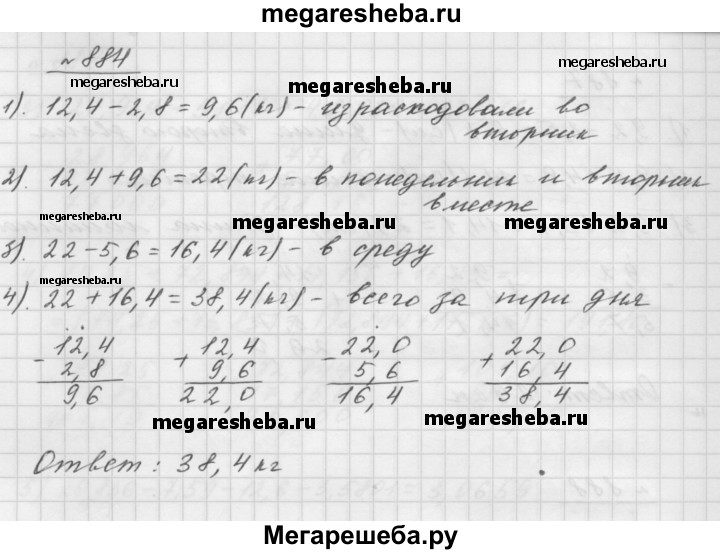 megaresheba.ru
№884
megaresheba.ru
megaresheba.ru
1). 12,4 - 2,8 = 9,6 (кг) - израсходовали во
вторник
2). 12,4 + 9,6 = 22 (кг) - в понедельник и вторник
вместе
megaresheba.ru
megaresheba.ru
megaresheba.ru
3). 22 - 5,6 = 16,4 (кг) - в среду
megaresheba.ru
megaresheba.ru
4). 22 + 16,4 = 38,4 (кг) - всего за три дня
- 12,4 + 12,4 - 22,0 + 22,0
2,8 9,6 5,6 16,4
9,6 22,0 16,4 38,4
megaresheba.ru
megaresheba.ru
Ответ: 38,4 кг
Мегарешеба.ру